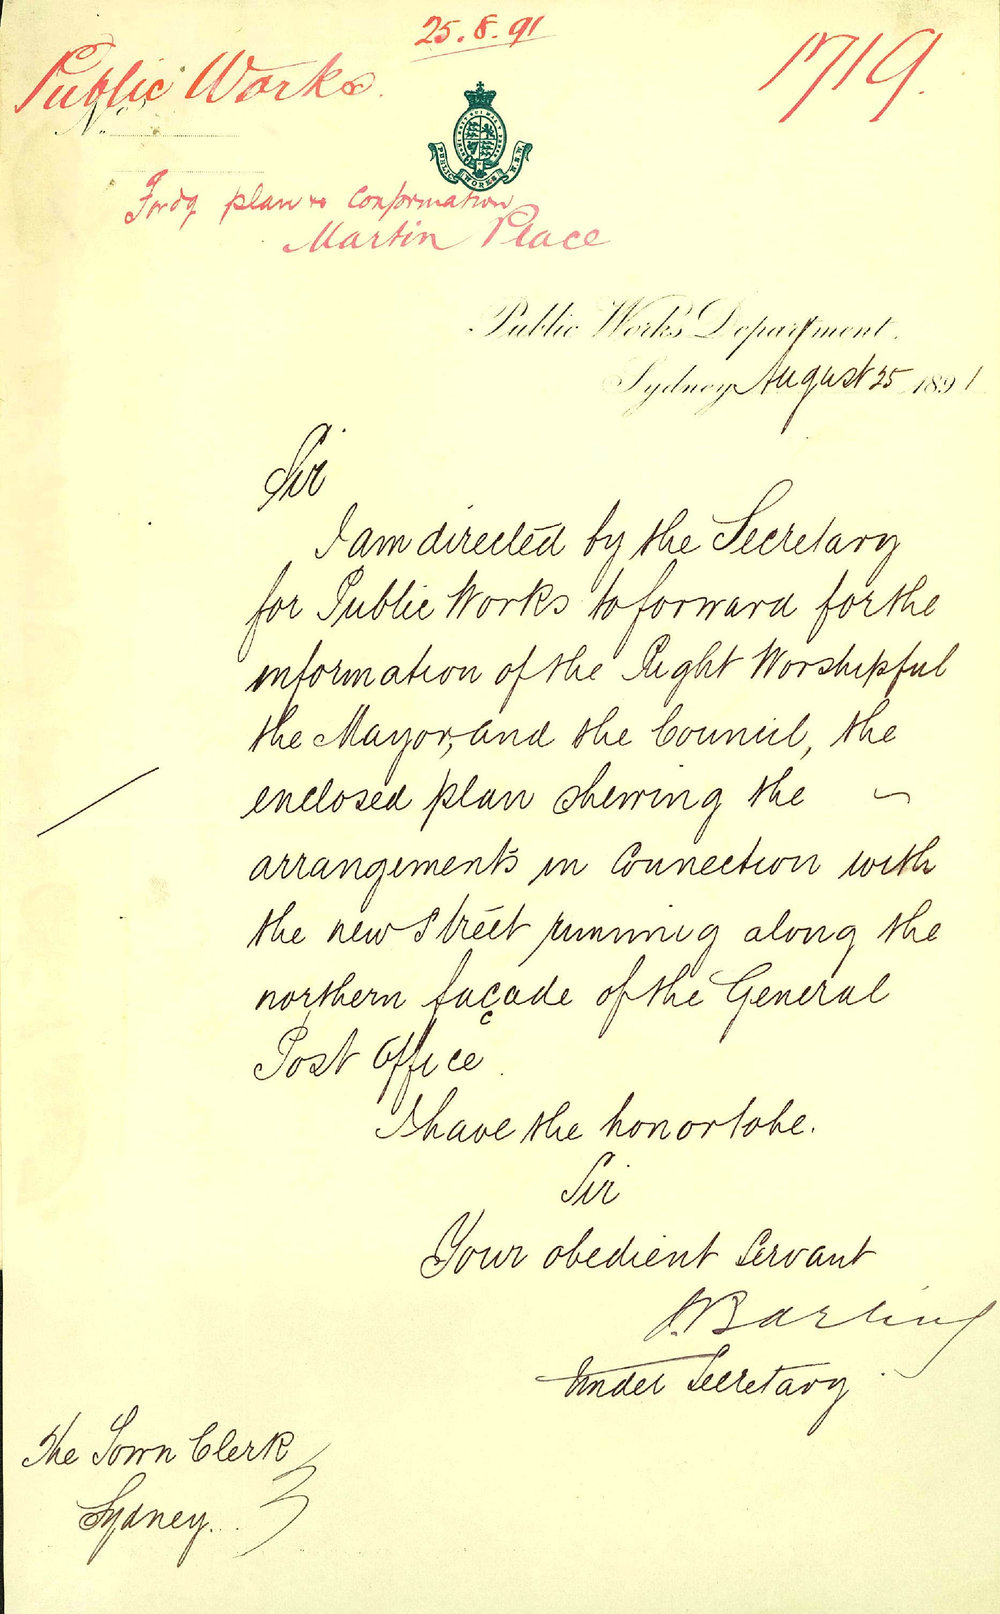 25.8.91
Public Works.
1719.
No.
PUBLIC WORKS N.S.W.
Fwdg plan re conformation
Martin Place
Public Works Department.
Sydney August 25 1891
Sir
I am directed by the Secretary
for Public Works to forward for the
information of the Right Worshipful
the Mayor, and the Council, the
enclosed plan shewing the
arrangements in connection with
the new Street running along the
northern façade of the General
Post Office.
I have the honor to be.
Sir
Your obedient Servant
J. Barling
Under Secretary.
The Town Clerk
Sydney.